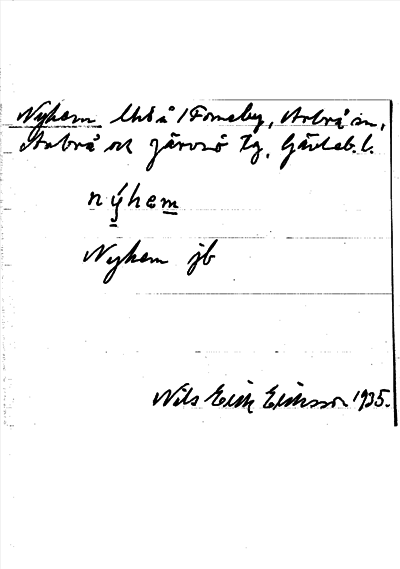 Nyhem lht å 1 Forneby, Arbrå sn,
Arbrå och Järvsö tg, Gävleb. l.
nýhem
Nyhem jb
Nils Erik Eriksson 1935.